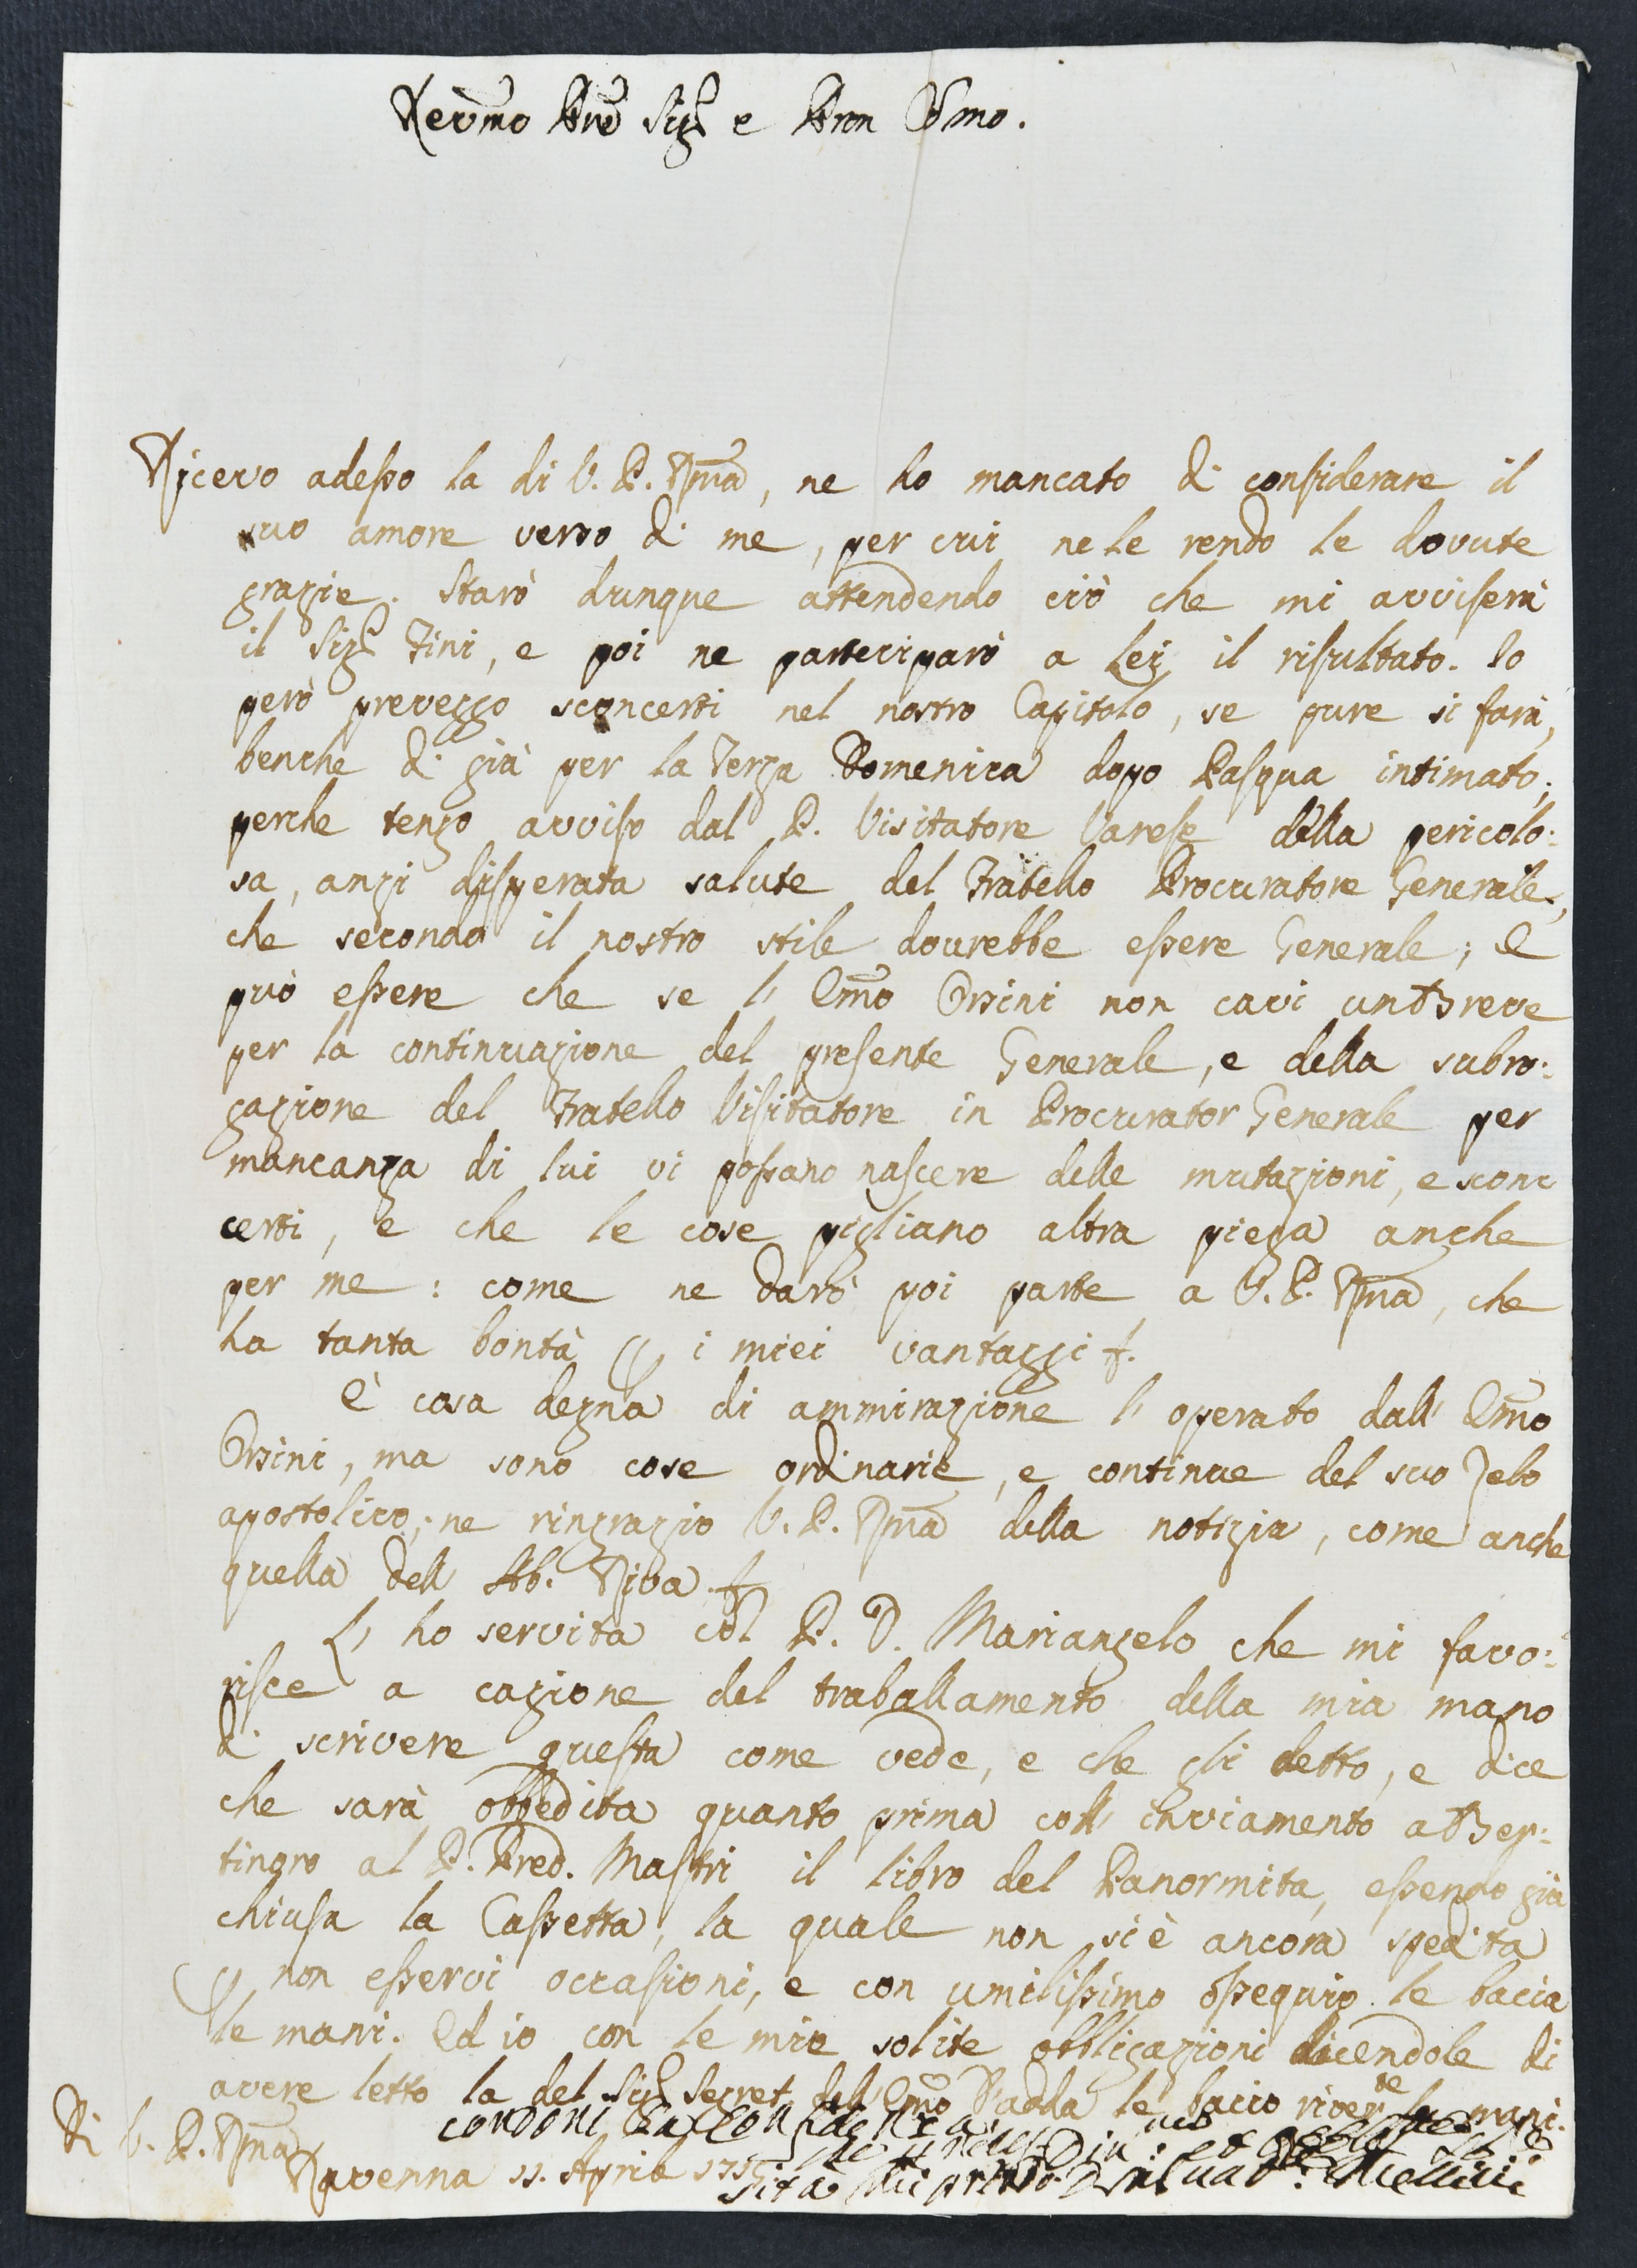 Revmo Pre Sigr e Pron Osmo.
Ricevo adesso la di V. P. Rma, ne ho mancato di considerare il
suo amore verso di me, per cui ne le rendo le dovute
grazie. Starò dunque attendendo ciò che mi avviserà
il Sigr Fini, e poi ne parteciparò a Lei il risultato. Io
però preveggo sconcerti nel nostro Capitolo, se pure si farà,
benche di già per la Terza Domenica dopo Pasqua intimato;
perche tengo avviso dal P. Visitatore Varese della pericolo:
sa, anzi disperata salute del Fratello Procuratore Generale,
che secondo il nostro stile dourebbe essere Generale; e
può essere che se l' Emo Orsini non cavi un Breve
per la continuazione del presente Generale, e della subro:
gazione del Fratello Visitatore in Procurator Generale per
mancanza di lui vi possano nascere delle mutazioni, e scon
certi, e che le cose pigliano altra piega anche
per me: come ne darò poi parte a V. P. Rma, che
ha tanta bontà i miei vantaggi
È cosa degna di ammirazione l' operato dall' Emo
Orsini, ma sono cose ordinarie, e continue del suo Zelo
apostolico; ne ringrazio V. P. Rma della notizia, come anche
quella dell Ab. Riva
L' ho servita col P. D. Mariangelo che mi favo:
risce a cagione del traballamento della mia mano
di scrivere questa come vede, e che gli detto, e dice
che sarà obbedita quanto prima coll' inviamento a Ber:
tinoro al P. Pred. Mastri il libro del Panormita, essendo già
chiusa la Cassetta, la quale non si è ancora spedita
non esservi occasioni, e con umilissimo ossequio le bacia
le mani. Ed io con le mie solite obbligazioni dicendole di
avere letto la del Sigr Segret. dell' Emo Dadda le bacio rivente le mani.
Di V. P. Rma condoni la confidenza
Ravenna 11. Aprile